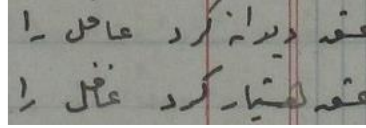 عشق دیوانه کرد عاقل را
عشق هشیار کرد غافل را